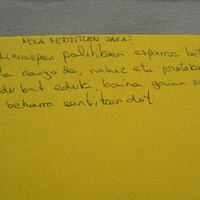 NOLA SENTITZEN ZARA?
politikoen esparru bet
la izango da, nahiz eta
du bat eduki, baina gaian s
beharra sentitzen dut.